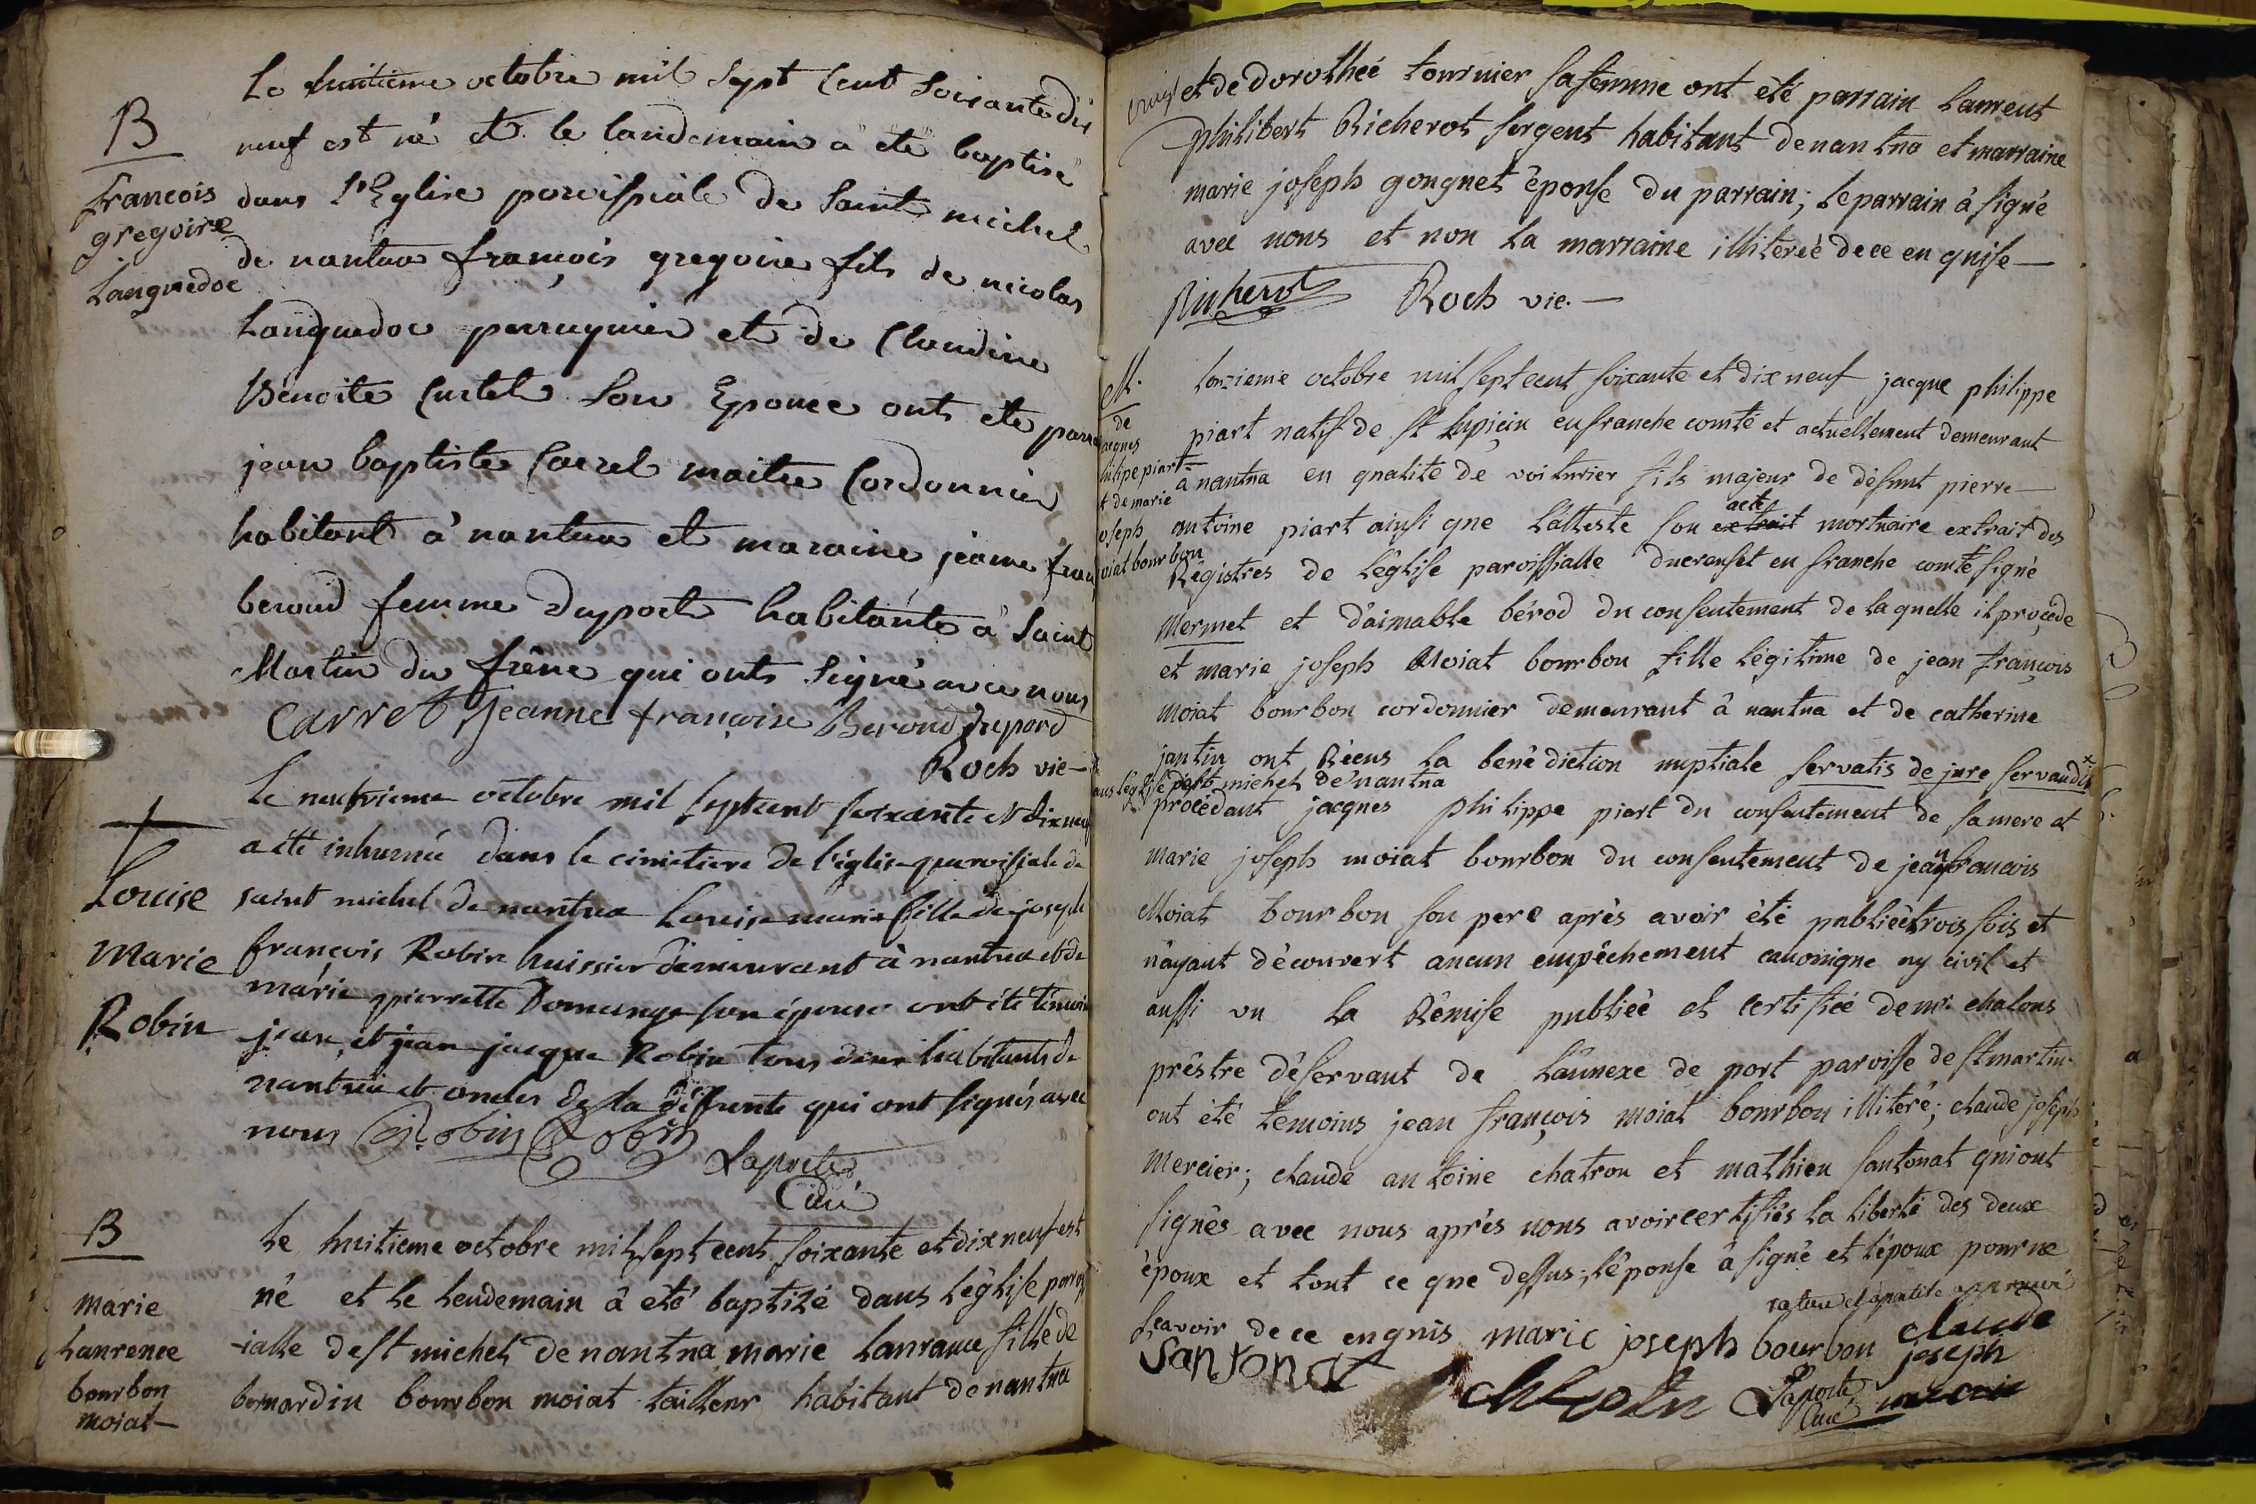 B
françois
gregoire
Languedoc
Le huitieme octobre mil sept Cent Soixante dix
neuf est né et le landemain a été baptisé
dans l'Eglise paroissiale de Saint michel
de nantua françois gregoire fils de nicolas
Languedoc perruquier et de Claudine
Benoite Curtel Son Epouse onts eté parra
jean baptiste Carrel maitre Cordonnier
habitant à nantua et maraine jeanne fran
beroud femme Duport habitante à Saint
Martin du frène qui onts Signé avec nous
Carret Jeanne françoise Beroud duport
Roch vic-
Louise
Marie
Robin
Le neuvieme octobre mil septcent soixante et dixneuf
a été inhumée dans le cimetiere de l'église paroissiale de
saint michel de nantua Louise marie fille de joseph
françois Robin huissier demeurant à nantua et de
marie pierrette Domange son épouse ont été témoins
jean, et jean jacque Robin tous deux habitants de
nantua et oncles de la défunte qui ont signés avec
nous Robin Robin
Laporte
Curé
B
Marie
Laurence
bourbon
moiat-
Le huitieme octobre mil sept cent soixante et dix neuf est
né et le lendemain â eté baptizé dans l'église paroiss
-ialle de st michel de nantua marie laurance fille de
bernardin bourbon moiat tailleur habitant de nantua
et de dorothée tournier sa femme ont été parrain laurent
philibert Richerot sergent habitant de nantua et marraine
marie joseph gougnet épouse du parrain; le parrain â signé
avec nous et non la marraine illiterée de ce enquise-
Richerot Roch vic.-
M.
de
jacques
philipe piart
et de marie
joseph
moiat bourbon
Lonzieme octobre mil sept cent soixante et dix neuf jacque philippe
piart natif de st lupiçin en franche comté et actuellement demeurant
â nantua en qualité de voiturier fils majeur de défunt pierre-
antoine piart ainsi que l'atteste son extrait acte mortuaire extrait des
Régistres de l'église paroissialle ducrouset en franche comté signé
Mermet et d'aimable bérod du consentement de laquelle il procéde
et marie joseph Moiat bourbon fille légitime de jean françois
moiat bourbon cordonnier demeurant â nantua et de catherine
jantin ont Réçus la bénédiction nuptiale servatis de jure servandis
dans léglise de st michel de nantua
procédant jacques philippe piart du consentement de sa mere et
marie joseph moiat bourbon du consentement de jean francois
Moiat bourbon son pere après avoir été publiée trois fois et
n'ayant découvert aucun empêchement canonique ny civil et
aussi vu la Rémise publiée et certifiée de mr. chalons
prêstre désservant de l'annexe de port paroisse de st martin
ont été temoins jean françois moiat bourbon illiteré; claude joseph
mercier; claude antoine chatron et mathieu santonat qui ont
signés avec nous après nous avoir certifiés la liberté des deux
époux et tout ce que dessus; l'épouse â signé et l'époux pour ne
rature et apostile approuvé
sçavoir de ce enquis marie joseph bourbon claude
joseph
Santonat Laporte
Curé